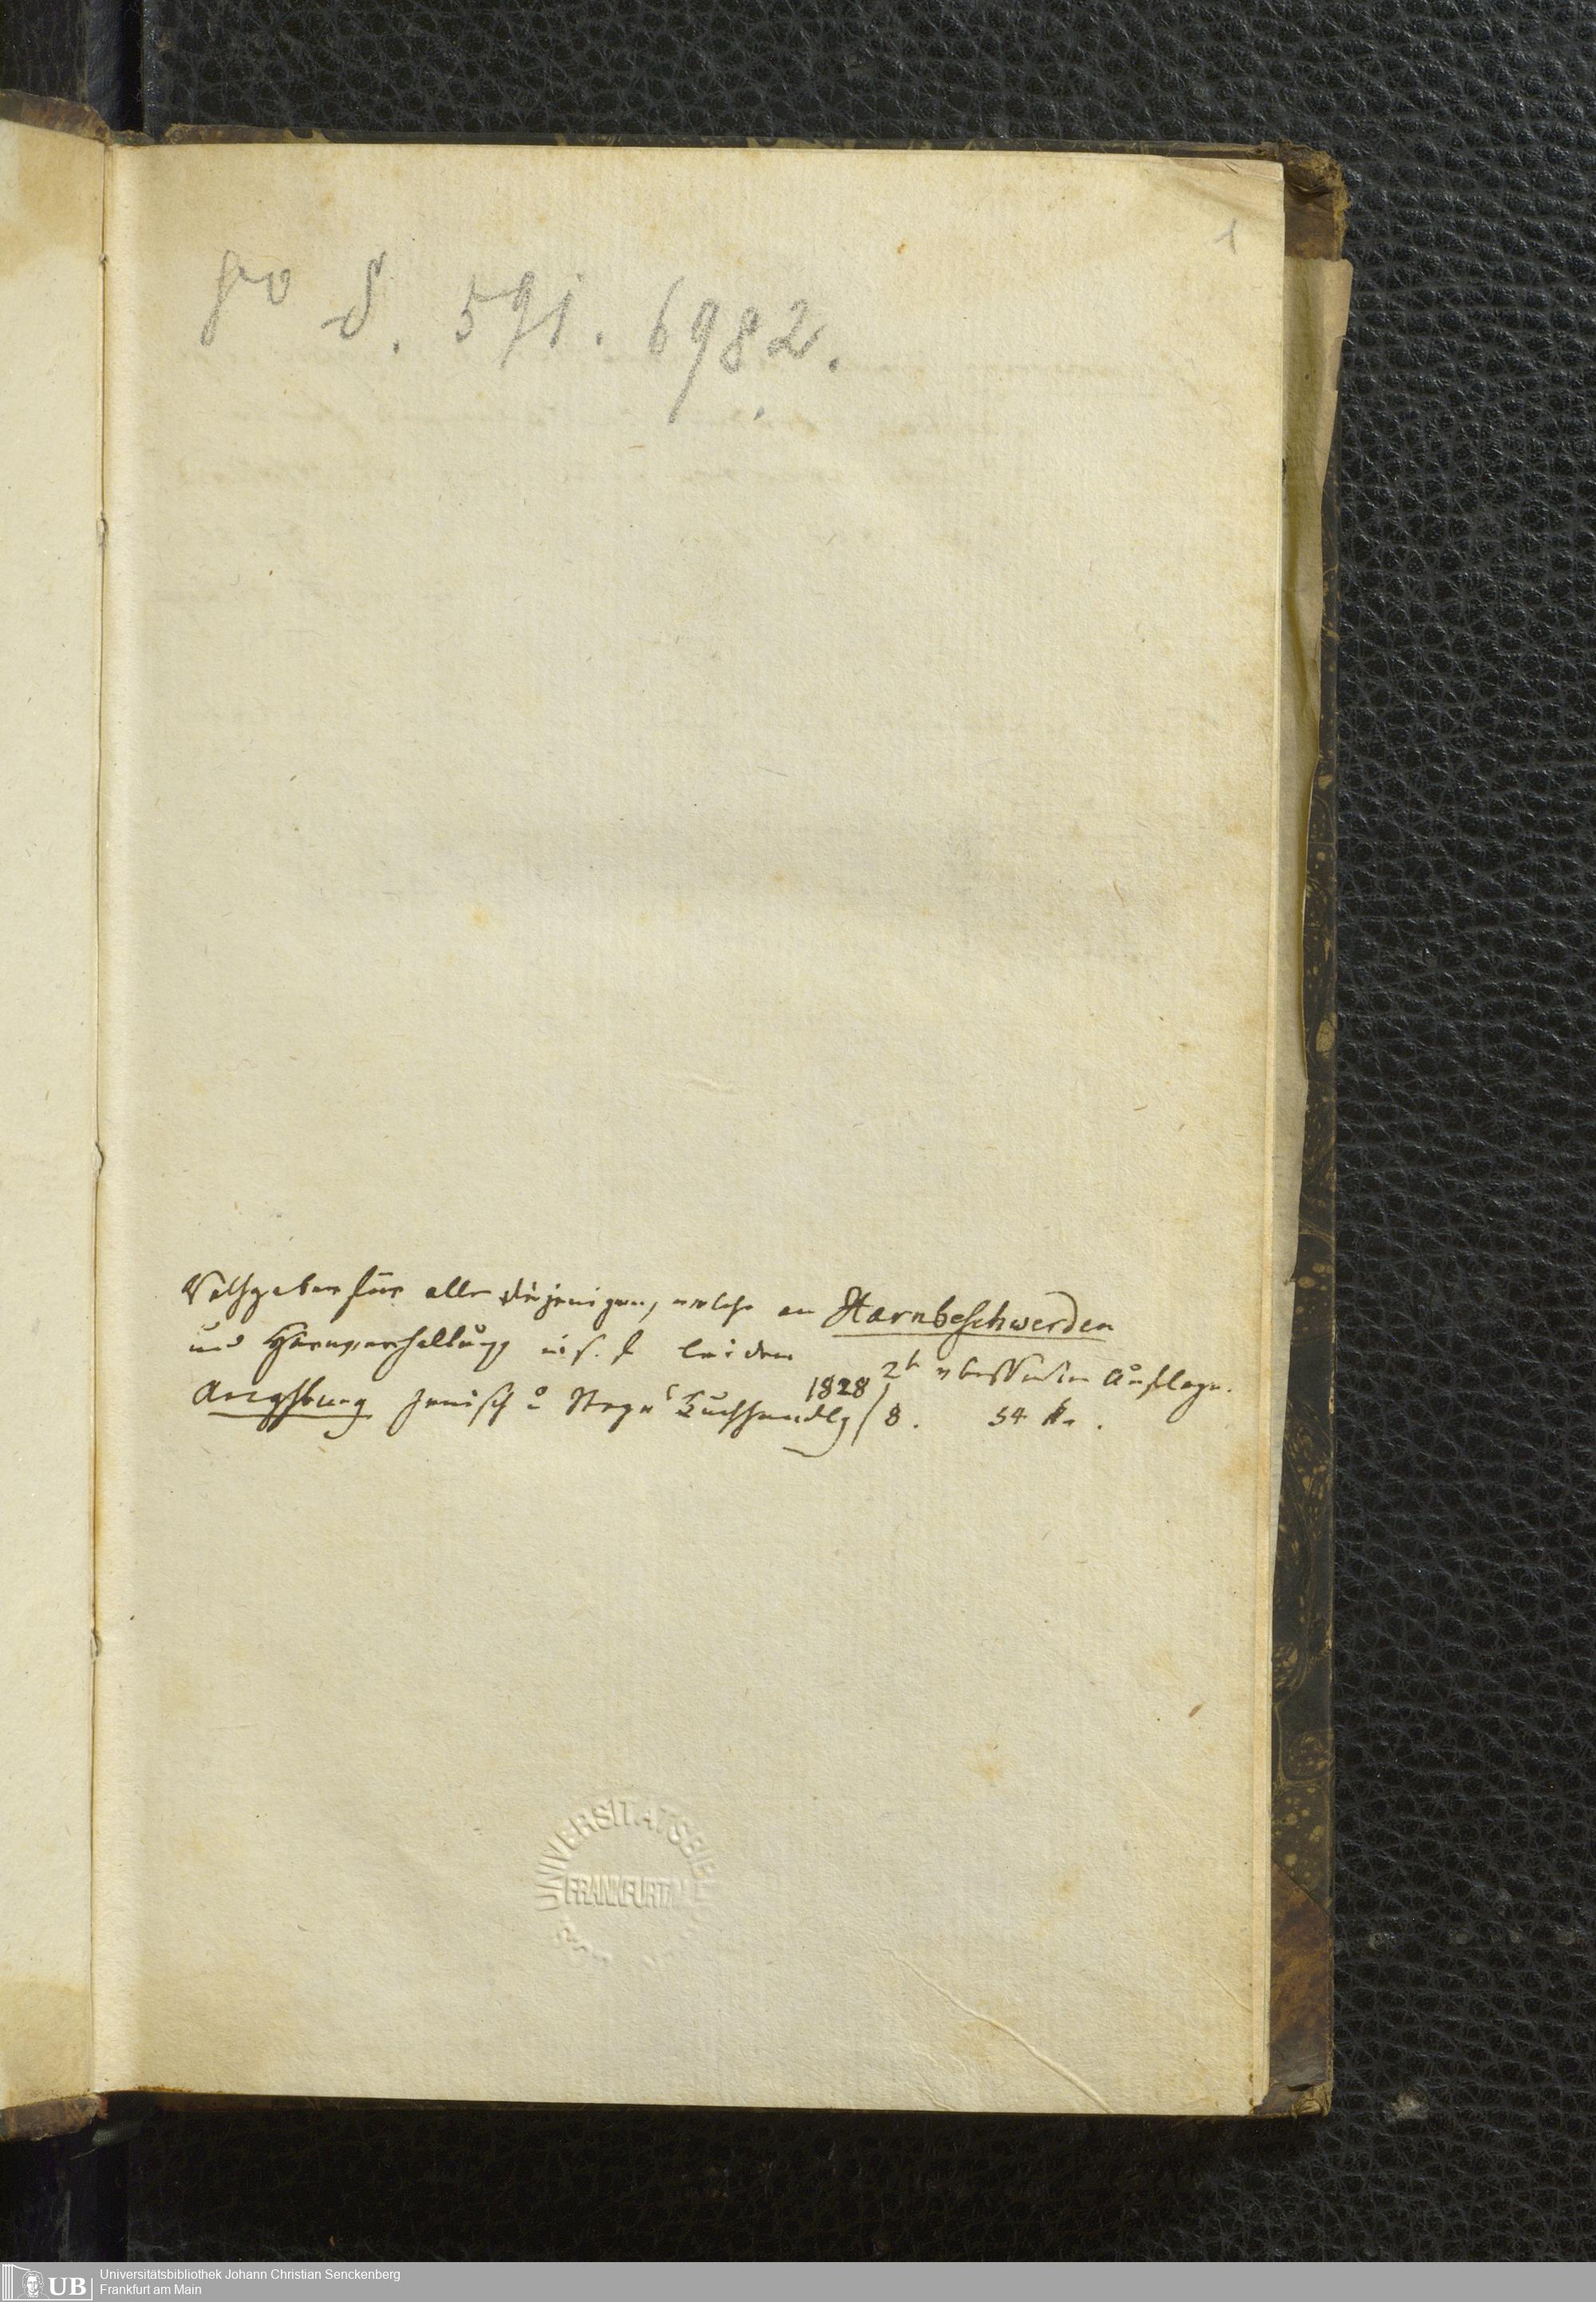 1
8vo S. 591. 6982.
Rathgeber für alle diejenigen, welche an Harnbeschwerden
und Harnverhaltung leiden
2te verbesserte Auflage.
Augsburg Jenisch u Stage Buchhandlg 1828 / 8. 54 kr.
UNIVERSITÄTSBIBL
FRANKFURT
UB
Universitätsbibliothek Johann Christian Senckenberg
Frankfurt am Main